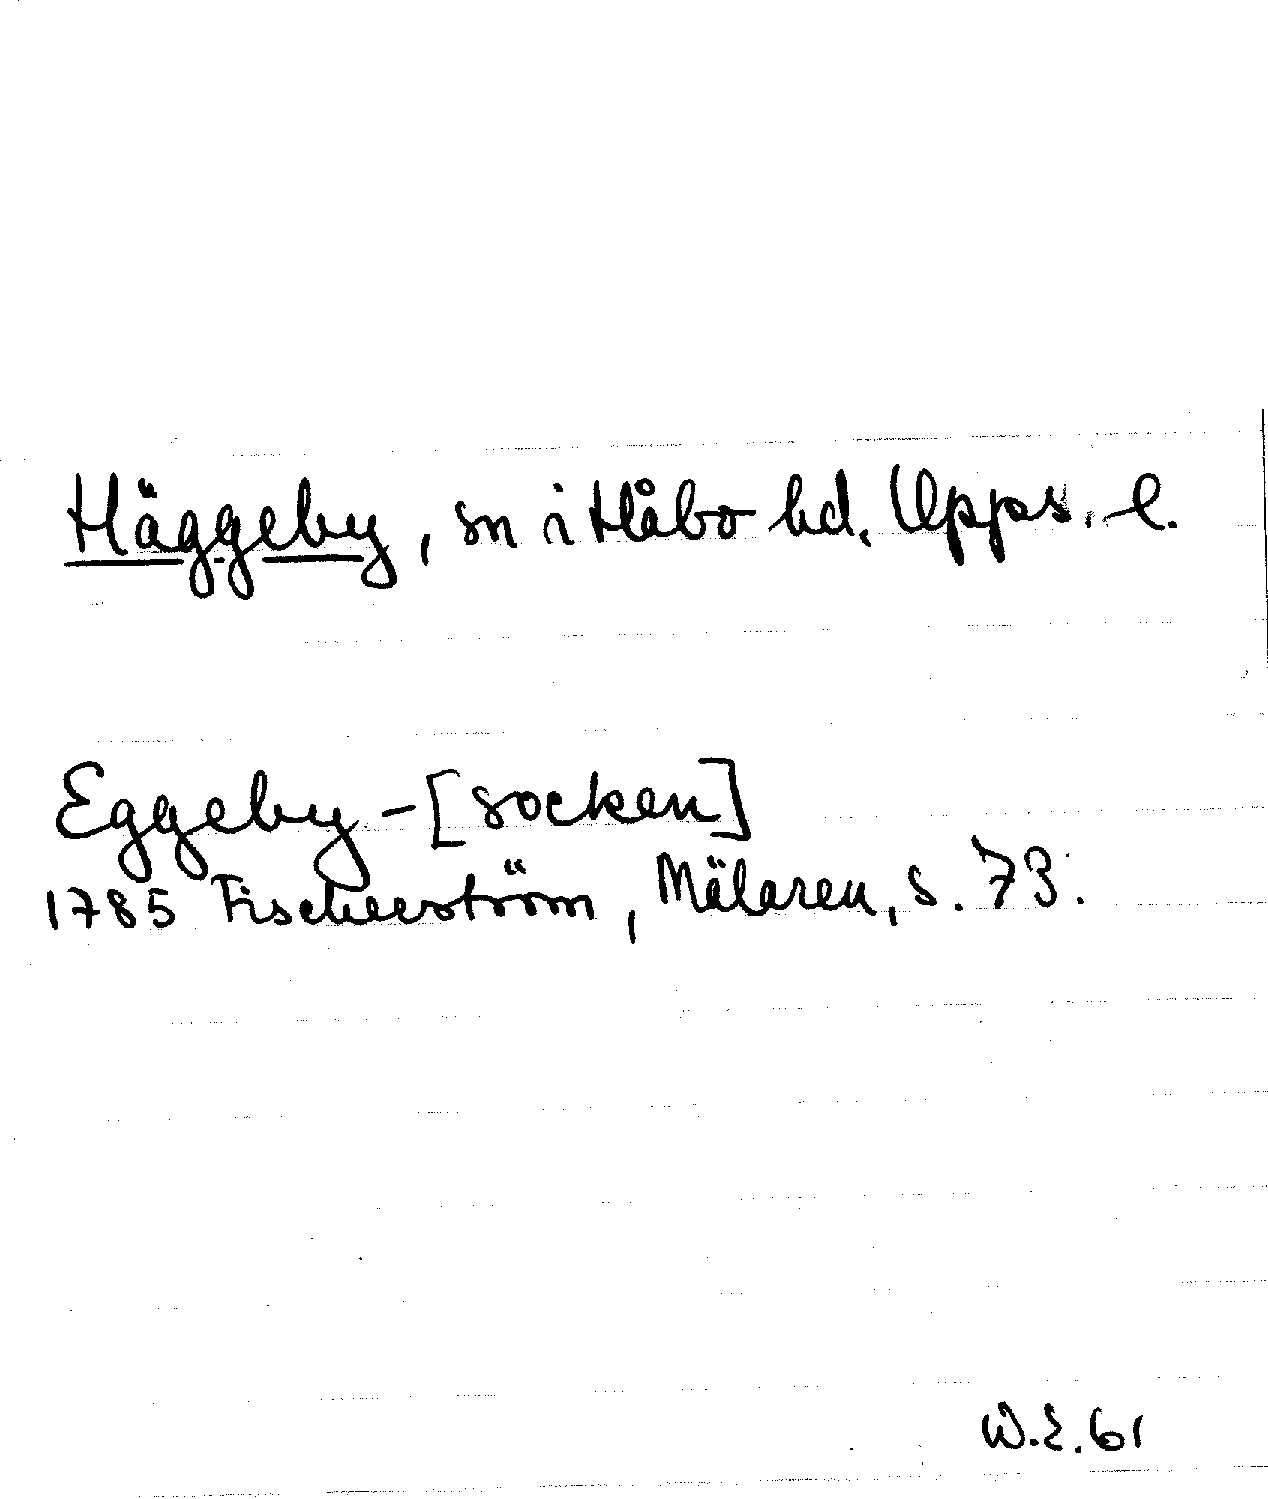 Häggeby, sn i Håbo hd, Upps. l.
Eggeby-[socken]
1785 Fischerström, Mälaren, s. 73.
W.E. 61